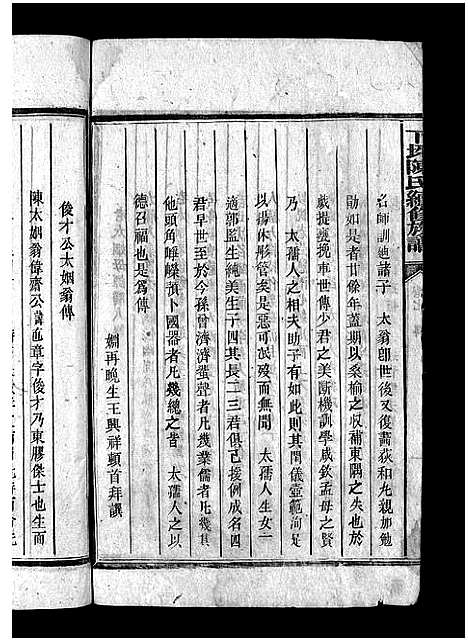 下坂陳氏續修族譜
名師訓廸諸子　太翁卽世後又復畵荻和丸親加勉
勖如是者廿餘年蓋期以桑榆之収補東隅之失也於
戲提甕挽車世傳少君之美斷機訓學咸欽孟母之賢
乃　太孺人之相夫助子有如此其閫儀壼範洵足
以揚休彤管矣是惡可泯而無聞　太孺人生女一
適郭監生純美生子四其長二三君俱已援例成名四
君早世至於今孫曾濟濟蜚聲者凡幾業儒者凡幾其
他頭角崢嶸預卜國器者凡幾總之皆　太孺人之以
德召福也是爲傳
姻再晩生王興祥頓首拜譔
俊才公太姻翁傳
陳太姻翁偉齋公諱也章字俊才乃東膠傑士也生而